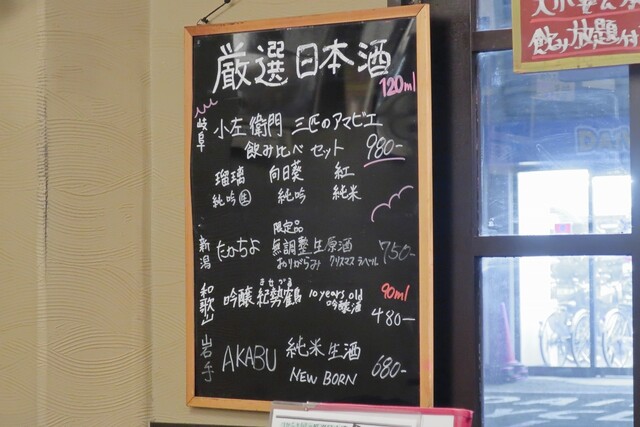 厳選日本酒
120ml
岐阜 小左衛門 三匹のアマビエ
飲み比べセット 980-
瑠璃 向日葵 紅
純吟生 純吟 純米
限定品
新潟 たかちよ 無調整生原酒 750-
おりがらみ クリスマスラベル
きせづる
和歌山 吟醸 紀勢鶴 10 years old 90ml
吟醸酒 480-
岩手 AKABU 純米生酒 680-
NEW BORN
飲み放題付